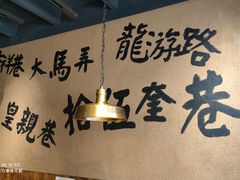 大馬弄
龍游路
皇親巷
拾伍奎巷